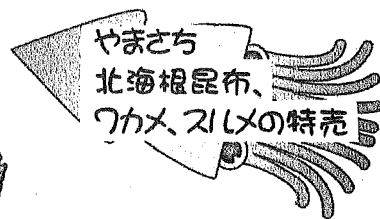 やまさち
北海根昆布、
ワカメ、スルメの特売